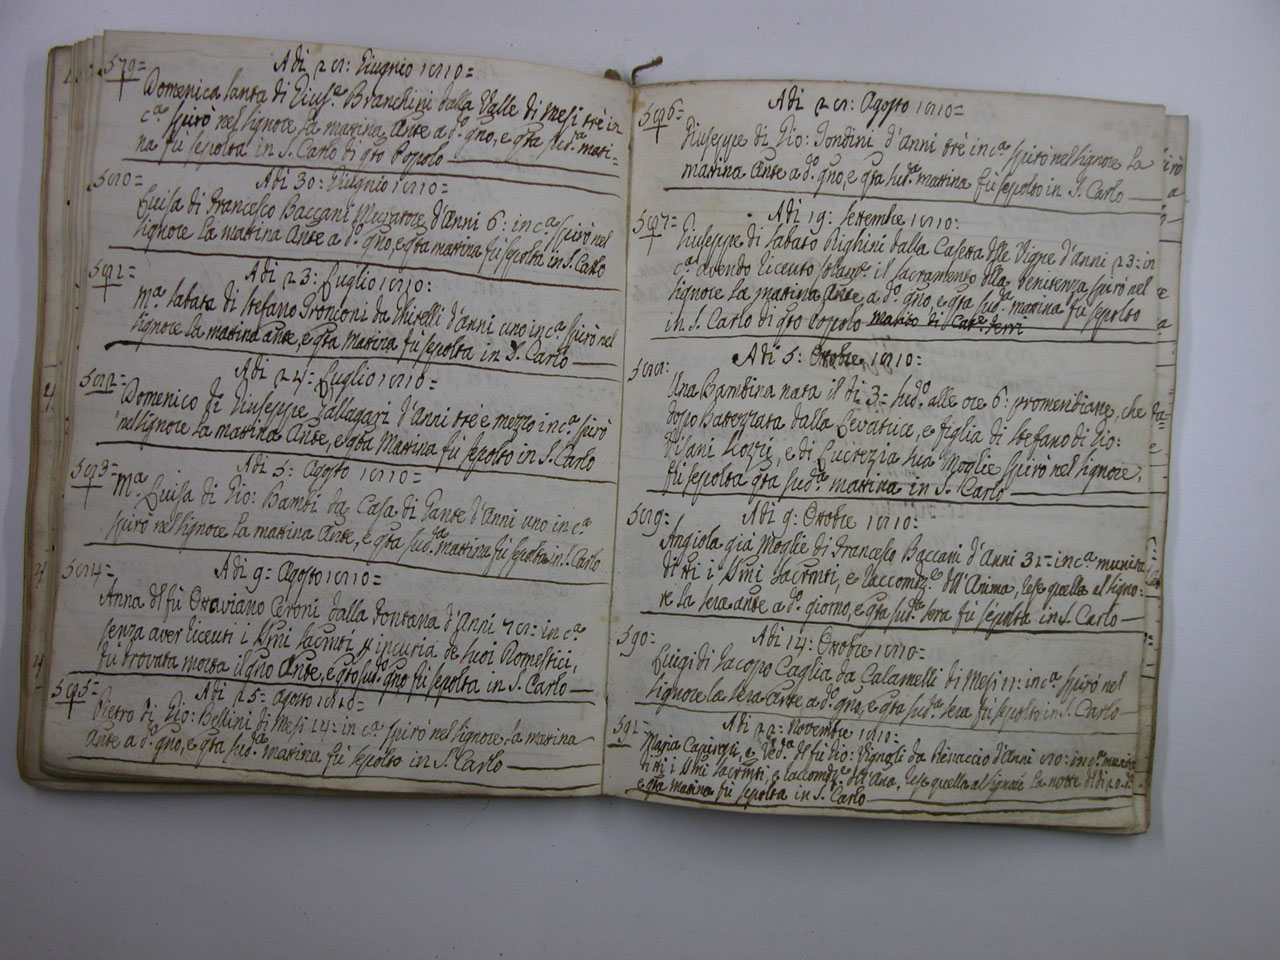 579=
Adi 28: Giugno 1810=
Domenica Santa di Gius.e Branchini dalla Valle di Mesi trè in
c.a spirò nel Signore la mattina Ante a d.o gno, e qta sud.a mati=
na fù sepolta in S. Carlo di qto Popolo
580=
Adi 30: Giugno 1810=
Luisa di Francesco Baccani Muratore d'Anni 6: in c.a spirò nel
Signore la mattina Ante a d.o gno, e qta mattina fù sepolta in S. Carlo
581=
Adi 23: Luglio 1810:
M.a Sabata di Stefano Tronconi da d'Anni uno in c.a spirò nel
Signore la mattina ante, e qta Mattina fù sepolta in S. Carlo
582=
Adi 24: Luglio 1810=
Domenico di Giuseppe Zallagari d'Anni trè e mezzo in c.a spirò
nel Signore la mattina Ante, e qta Mattina fù sepolto in S. Carlo
583=
Adi 5: Agosto 1810=
M.a Luisa di Gio: Bambi da Casa di Gante d'Anni uno in c.a
spirò nel Signore la mattina Ante, e qta sud.a mattina fù sepolta in S. Carlo
584=
Adi 9: Agosto 1810=
Anna del fù Ottaviano Ceroni dalla Fontana d'Anni 78: in c.a
senza aver ricevuti i SSmi Sacmti p incuria de suoi Domestici,
fù trovata morta il gno Ante, e qto sud.o gno fù sepolta in S. Carlo
585=
Adi 25= Agosto 1810=
Pietro di Gio: Bellini di Mesi 14: in c.a spirò nel Signore la mattina
Ante a d.o gno, e qta sud.a mattina fù sepolto in S. Carlo
586=
Adi 28: Agosto 1810=
Giuseppe di Gio: Tondini d'Anni trè in c.a spirò nel Signore la
mattina Ante a d.o gno, e qta sud.a mattina fù sepolto in S. Carlo
587=
Adi 19= Settembre 1810:
Giuseppe di Sabato Righini dalla Casetta delle Vigne d'Anni 23: in
c.a avendo ricevuto il Sacramento della Penitenza spirò nel
Signore la mattina Ante a d.o gno, e qta sud.a mattina fù sepolto
in S. Carlo di qto Popolo marito di
588:
Adi 5: Ottobre 1810=
Una Bambina nata il di 3= sud.o alle ore 6: promeridiane, che fù
dopo Battezzata dalla Levatrice, e figlia di Stefano di Gio:
e di Lucrezia sua Moglie spirò nel Signore,
fù sepolta qta sud.a mattina in S. Carlo
589=
Adi 9: Ottobre 1810:
Angiola già Moglie di Francesco Baccani d'Anni 31= in c.a munita
di tti i SSmi Sacrmti, e raccomdz.e dell'Anima, rese quella al Signo=
re la sera ante a d.o giorno, e qta sud.a sera fù sepolta in S. Carlo
590=
Adi 14: Ottobre 1810=
Luigi di Jacopo Caglia da Calamelli di Mesi 11: in c.a spirò nel
Signore la sera Ante a d.o gno, e qta sud.a sera fù sepolto in S. Carlo
591=
Adi 22: Novembre 1810:
Maria e Ved.a del fù Gio: Vignoli da d'Anni 80: in c.a munita
di tti i SSmi Sacrmti, e raccomdz.e dell'Ana, rese quella al Signore la notte
e qta mattina fù sepolta in S. Carlo